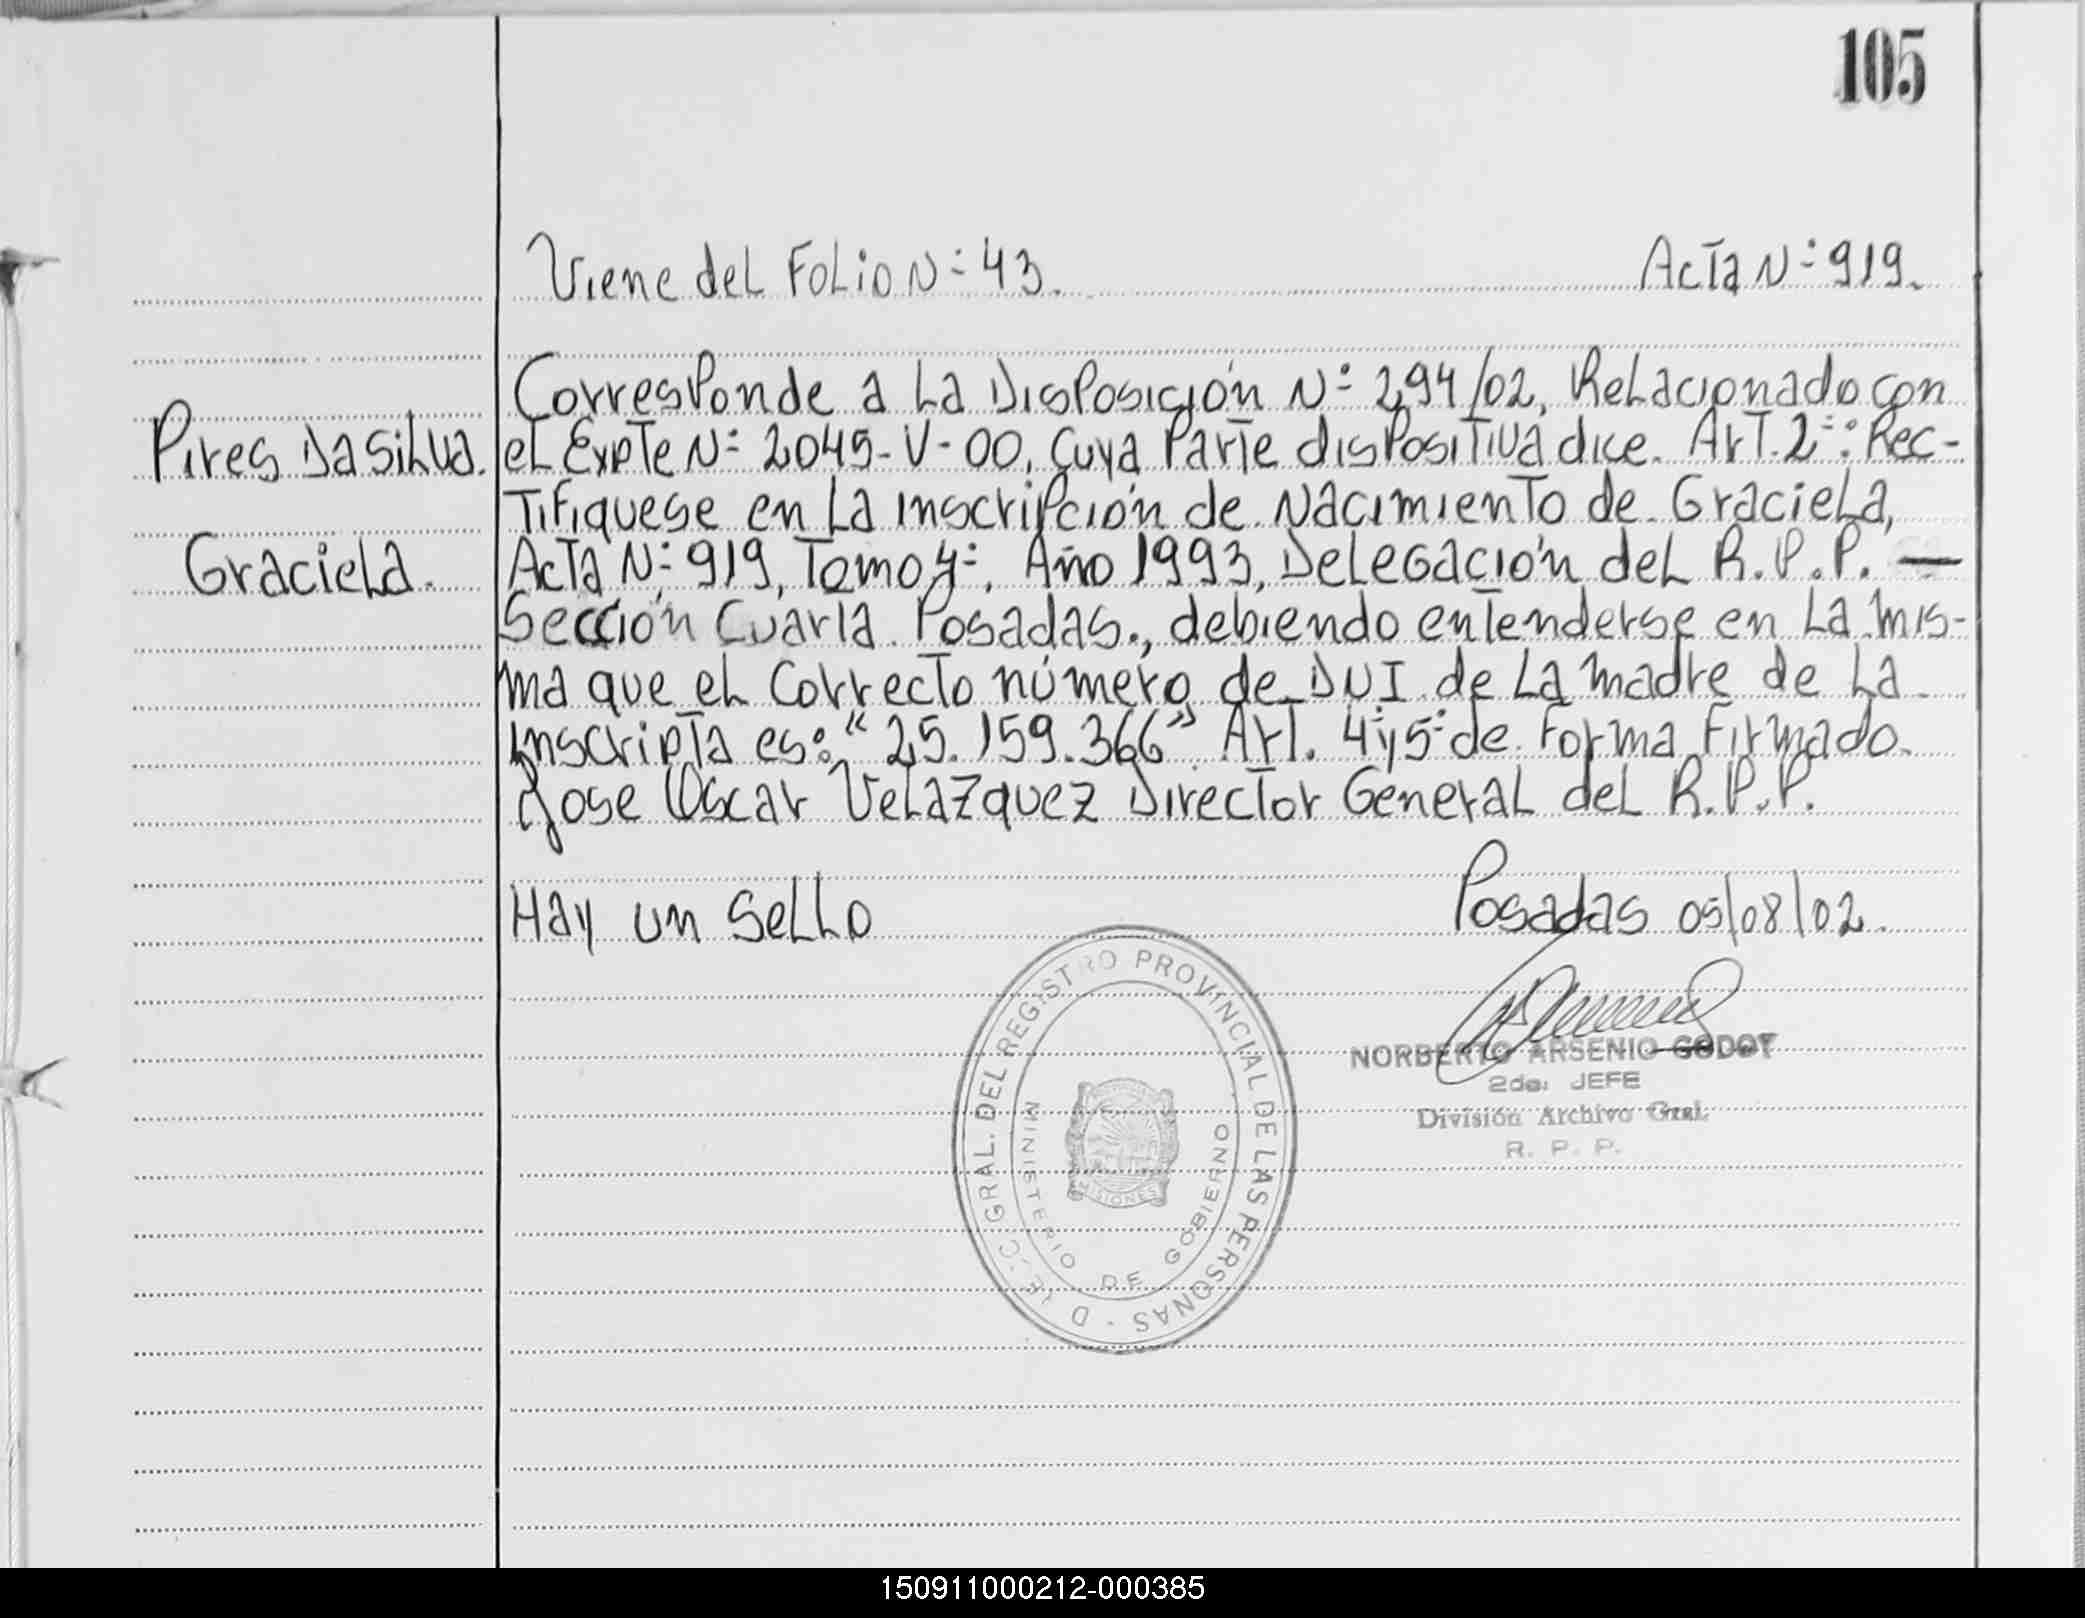 105
Viene del Folio N: 43. Acta N: 919.
Corresponde a La Disposición N: 294/02, Relacionado con
Pires Da Silva. el Expte N: 2045-V-00, Cuya Parte dispositiva dice. Art. 2: : Rec-
Tifiquese en La inscripción de Nacimiento de Graciela,
Graciela. Acta N: 919, Tomo 4:, Año 1993, Delegación del R.P.P. —
Sección Cuarta Posadas., debiendo entenderse en La mis-
ma que el Correcto número de DNI de La madre de La
inscripta es: "25.159.366" Art. 4:y5: de Forma Firmado.
Jose Oscar Velazquez Director General del R.P.P.
Hay un Sello Posadas 05/08/02.
DIRECC GRAL. DEL REGISTRO PROVINCIAL DE LAS PERSONAS -
MINISTERIO DE GOBIERNO
MISIONES
NORBERTO ARSENIO GODOY
2do. JEFE
División Archivo Gral.
R. P. P.
150911000212-000385